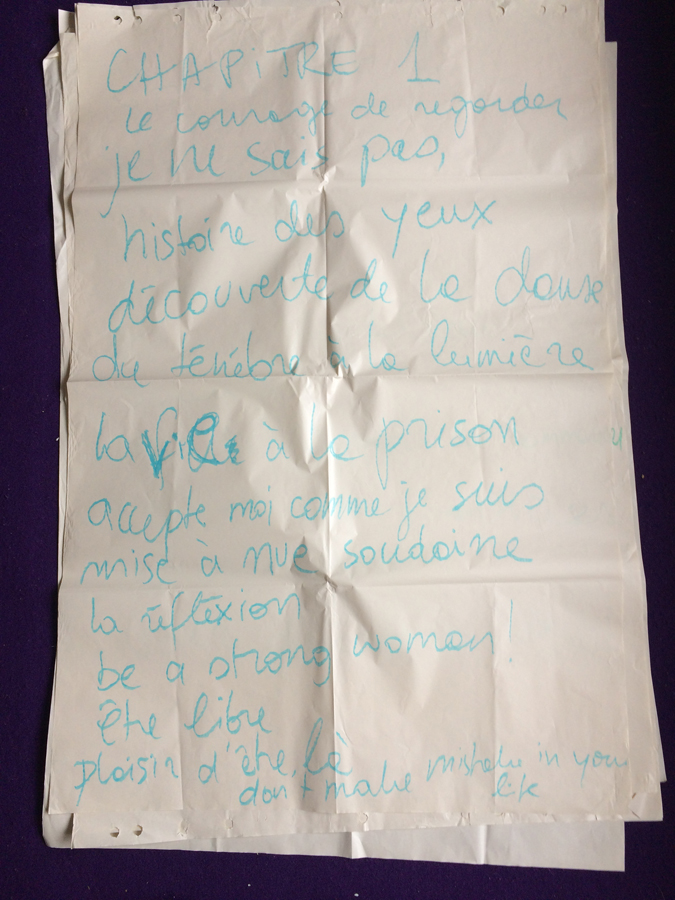 CHAPITRE 1
Le courage de regarder
je ne sais pas,
histoire des yeux
découverte de la danse
du ténébre à la lumière
la vie à la prison
accepte moi comme je suis
mise à nue soudaine
la réfléxion
be a strong woman!
être libre
plaisir d'être là
don't make mistake in your
life